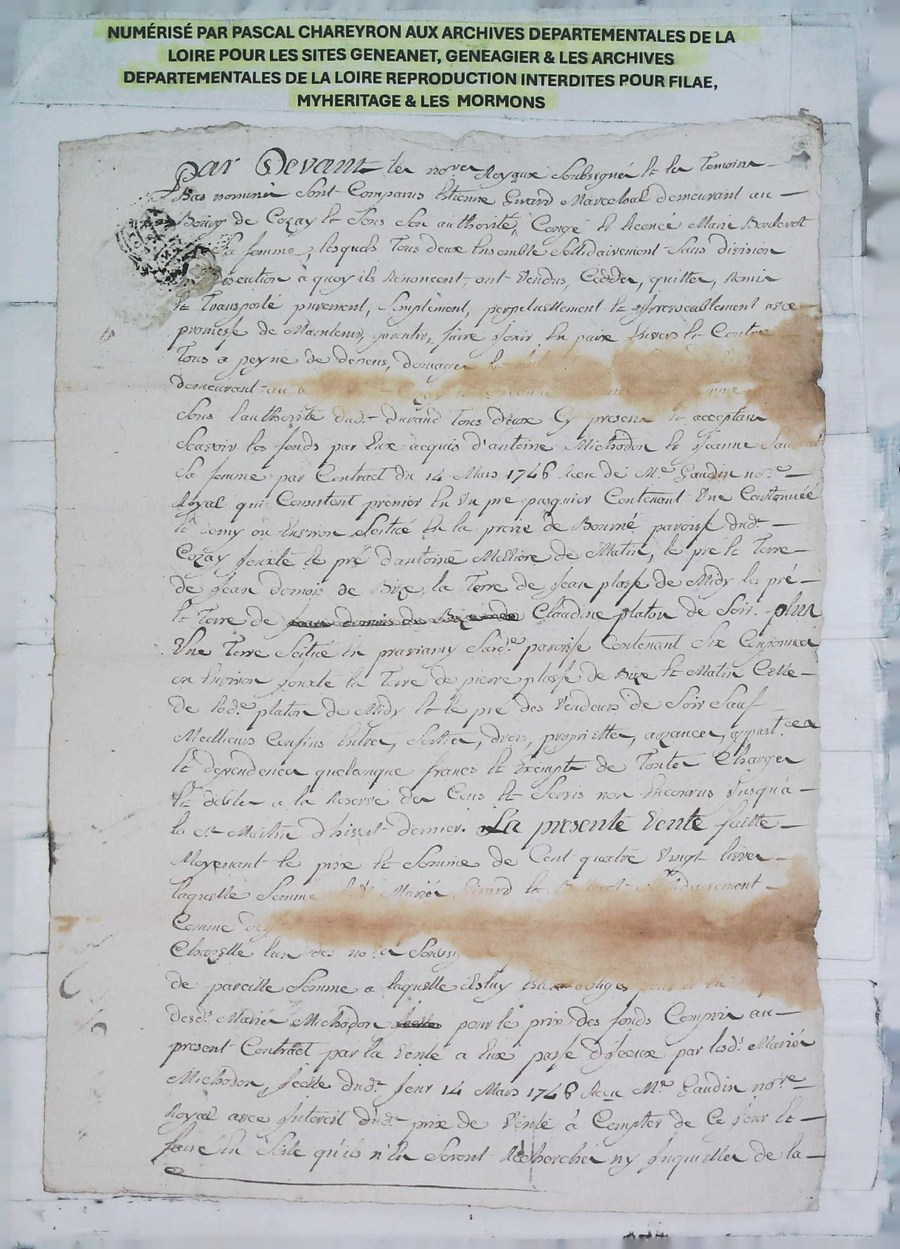 NUMÉRISÉ PAR PASCAL CHAREYRON AUX ARCHIVES DEPARTEMENTALES DE LA
LOIRE POUR LES SITES GENEANET, GENEAGIER & LES ARCHIVES
DEPARTEMENTALES DE LA LOIRE REPRODUCTION INTERDITES POUR FILAE,
MYHERITAGE & LES MORMONS
Par Devant les nores Royaux Soubsignés et les Temoins
Bas nommés Sont Comparus Etienne Girard Marechal demeurant au
Bourg de Cozay et Sous Son authorité, Congé et licence Marie
sa femme, lesquels Tous deux Ensemble Solidairement Sans division
à quoy ils Renoncent, ont Vendus, Cedder, quitter, Remis
et Transporté purement, Simplement, perpetuellement et jrrevocablement avec
promesse de Maintenir, garentir, faire jouir En paix Envers et Contre
Tous a peyne de depens, domages
demeurant au
Sous l'authorité dudt. durand Tous deux Cy presents et acceptans
Scavoir les fonds par Eux acquis d'antoine Michodon et Jeanne
Sa femme par Contract du 14 Mars 1746 Receu de Me. Gaudin nore
Royal qui Consistent premier En Un pré pasquier Contenant Une
et demy ou Environ Scitué En la prerie de Bourné paroisse dudt.
Cozay jouxte le pré d'antoine de Matin, le pré et Terre
de Jean de Bize, la Terre de Jean plasse de Midy la pré
et Terre de Claudine platon de Soir. plus
Une Terre Scitué En Sardte. paroisse Contenant Six
ou Environ jouxte la Terre de pierre plasse de Bize et Matin Celle
de ladte. platon de Midy et le pré des Vendeurs de Soir Sauf
Meilleurs Confins Entrées, Sorties, droits, proprietter, aizances, appartces
et dependences quelconque francs et Exempts de Toutes Charges
et debtes a la Reserve des Cens et Servis non Encourus Jusqu'à
la St. Martin d'hivert dernier. La presente Vente faitte
Moyenant le prix et Somme de Cent quatre Vingt livres
laquelle Somme Mariés Girard et
Comme
Chazelle l'un des nores
de pareille Somme a laquelle
desds. Mariés Michodon pour le prix des fonds Compris au
present Contract par la Vente a Eux passé d'jceux par lesds. Mariés
Michodon, dudt. jour 14 Mars 1746 Receu Me. Gaudin nore
Royal avec Jnterest dudt. prix de Vente à Compter de Ce jour et
faire En Sorte qu'ils n'En Seront Recherchés ny Jnquiettes de la